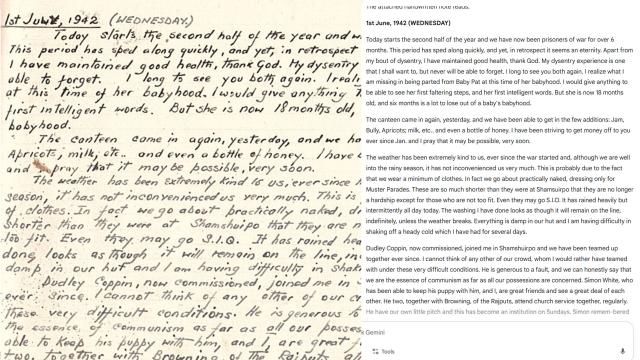 1st 1942 (WEDNESDAY.)
Today starts the second half of the year and w
This period has sped along quickly, and yet, in retrospect
I have maintained good health, thank God. My dysentry
able to forget. I long to see you both again. I reali
at this time of her babyhood. I would give anything
first intelligent words. But she is now 18 months old,
babyhood.
The canteen came in again, yesterday, and we ha
Apricots, milk, etc.. and even a bottle of honey. I have
and pray that it may be possible, very soon.
The weather has been extremely kind to us, ever since
season, it has not inconvenienced us very much. This is
of clothes. In fact we go about practically naked, d
shorter than they were at Shamshuipo that they are n
too fit. Even they may go S.I.Q. It has rained hea
done, looks as though it will remain on the line, in
damp in our hut and I am having difficulty in shak
Dudley Coppin, now commissioned, joined me in
ever since. I cannot think of any other of our
these very difficult conditions. He is generous to
the essence of communism as far as all our posses
able to keep his puppy with him, and I, are great
two, together with Browning of the Rajputs, all
The attached handwritten note reads:
1st June, 1942 (WEDNESDAY)
Today starts the second half of the year and we have now been prisoners of war for over 6
months. This period has sped along quickly, and yet, in retrospect it seems an eternity. Apart from
my bout of dysentry, I have maintained good health, thank God. My dysentry experience is one
that I shall want to, but never will be able to forget. I long to see you both again, I realize what I
am missing in being parted from Baby Pat at this time of her babyhood. I would give anything to
be able to see her first faltering steps, and her first intelligent words. But she is now 18 months
old, and six months is a lot to lose out of a baby's babyhood.
The canteen came in again, yesterday, and we have been able to get in the few additions: Jam,
Bully, Apricots; milk, etc.. and even a bottle of honey. I have been striving to get money off to you
ever since Jan. and I pray that it may be possible, very soon.
The weather has been extremely kind to us, ever since the war started and, although we are well
into the rainy season, it has not inconvenienced us very much. This is probably due to the fact
that we wear a minimum of clothes. In fact we go about practically naked, dressing only for
Muster Parades. These are so much shorter than they were at Shamsuirpo that they are no longer
a hardship except for those who are not too fit. Even they may go S.I.O. It has rained heavily but
intermittently all day today. The washing I have done looks as though it will remain on the line,
indefinitely, unless the weather breaks. Everything is damp in our hut and I am having difficulty in
shaking off a heady cold which I have had for several days.
Dudley Coppin, now commissioned, joined me in Shamshuipo and we have been teamed up
together ever since. I cannot think of any other of our crowd, whom I would rather have teamed
with under these very difficult conditions. He is generous to a fault, and we can honestly say that
we are the essence of communism as far as all our possessions are concerned. Simon White, who
has been able to keep his puppy with him, and I, are great friends and see a great deal of each
other. He two, together with Browning, of the Rajputs, attend church service together, regularly.
He have our own little pitch and this has become an institution on Sundays. Simon remem-bered
Gemini
Tools